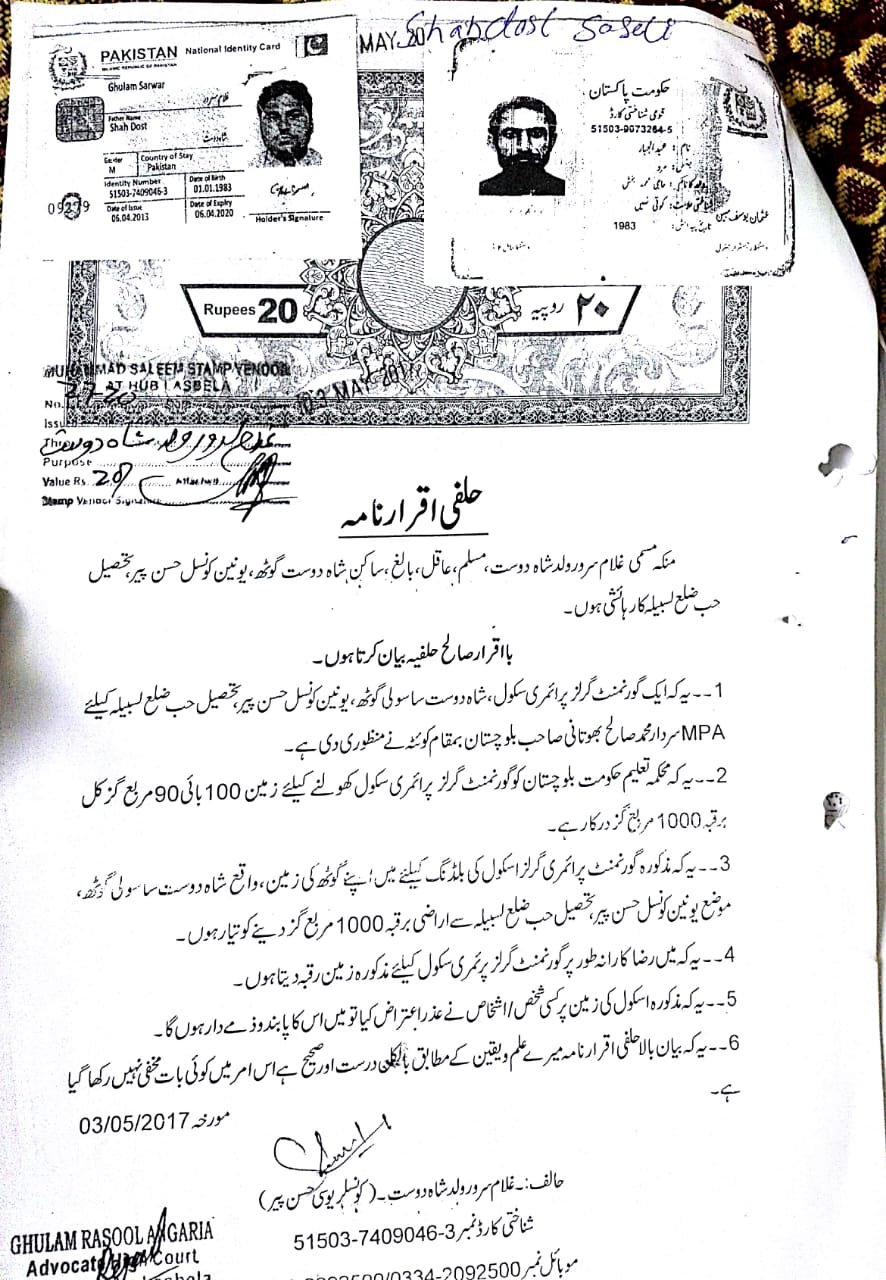 Shahdost Sasoli
MAY 20
PAKISTAN National Identity Card
ISLAMIC REPUBLIC OF PAKISTAN
Ghulam Sarwar
غلام سرور
Father Name
Shah Dost
شاہ دوست
Gender
M
Country of Stay
Pakistan
Identity Number
51503-7409046-3
Date of Birth
01.01.1983
Date of Issue
06.04.2013
Date of Expiry
06.04.2020
Holder's Signature
09279
حکومت پاکستان
قومی شناختی کارڈ
51503-9073264-5
نام: عبدالجبار
جنس: مرد
والد کا نام: حاجی محمد بخش
شناختی علامت: کوئی نہیں
تاریخ پیدائش: 1983
عثمان یوسف مبین
Rupees 20
۲۰ روپیہ
MUHAMMAD SALEEM STAMP VENDOR
AT HUB LASBELA
03 MAY 2017
No.
غلام سرور ولد شاہ دوست
Purpose
Value Rs. 20/
Stamp Vendor Signature
حلفی اقرار نامہ
منکہ مسمی غلام سرور ولد شاہ دوست، مسلم، عاقل، بالغ، ساکن شاہ دوست گوٹھ، یونین کونسل حسن پیر، تحصیل
حب ضلع لسبیلہ کا رہائشی ہوں۔
با اقرار صالح حلفیہ بیان کرتا ہوں۔
1۔۔یہ کہ ایک گورنمنٹ گرلز پرائمری سکول، شاہ دوست ساسولی گوٹھ، یونین کونسل حسن پیر، تحصیل حب ضلع لسبیلہ کیلئے
MPA سردار محمد صالح بھوتانی صاحب بلوچستان بمقام کوئٹہ نے منظوری دی ہے۔
2۔۔یہ کہ محکمہ تعلیم حکومت بلوچستان کو گورنمنٹ گرلز پرائمری سکول کھولنے کیلئے زمین 100 بائی 90 مربع گز کل
برقبہ 1000 مربع گز درکار ہے۔
3۔۔یہ کہ مذکورہ گورنمنٹ پرائمری گرلز اسکول کی بلڈنگ کیلئے میں اپنے گوٹھ کی زمین، واقع شاہ دوست ساسولی گوٹھ،
موضع یونین کونسل حسن پیر، تحصیل حب ضلع لسبیلہ سے اراضی برقبہ 1000 مربع گز دینے کو تیار ہوں۔
4۔۔یہ کہ میں رضاکارانہ طور پر گورنمنٹ گرلز پرئمری سکول کیلئے مذکورہ زمین رقبہ دیتا ہوں۔
5۔۔یہ کہ مذکورہ اسکول کی زمین پر کسی شخص/اشخاص نے عذر اعتراض کیا تو میں اس کا پابند و ذمے دار ہوں گا۔
6۔۔یہ کہ بیان بالا حلفی اقرار نامہ میرے علم و یقین کے مطابق بالکل درست اور صحیح ہے اس امر میں کوئی بات مخفی نہیں رکھا گیا
ہے۔
مورخہ 03/05/2017
حالف:۔ غلام سرور ولد شاہ دوست۔ (کونسلر یوسی حسن پیر)
شناختی کارڈ نمبر 51503-7409046-3
موبائل نمبر 0334-2092500
GHULAM RASOOL ANGARIA
Advocate High Court